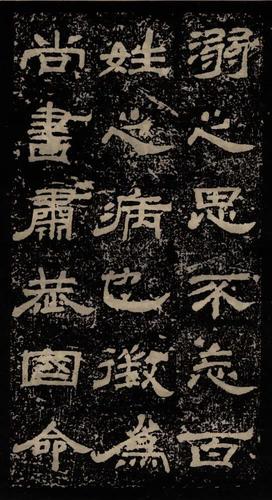 溺之思不忘百
姓之病也徵為
尚書肅恭國命